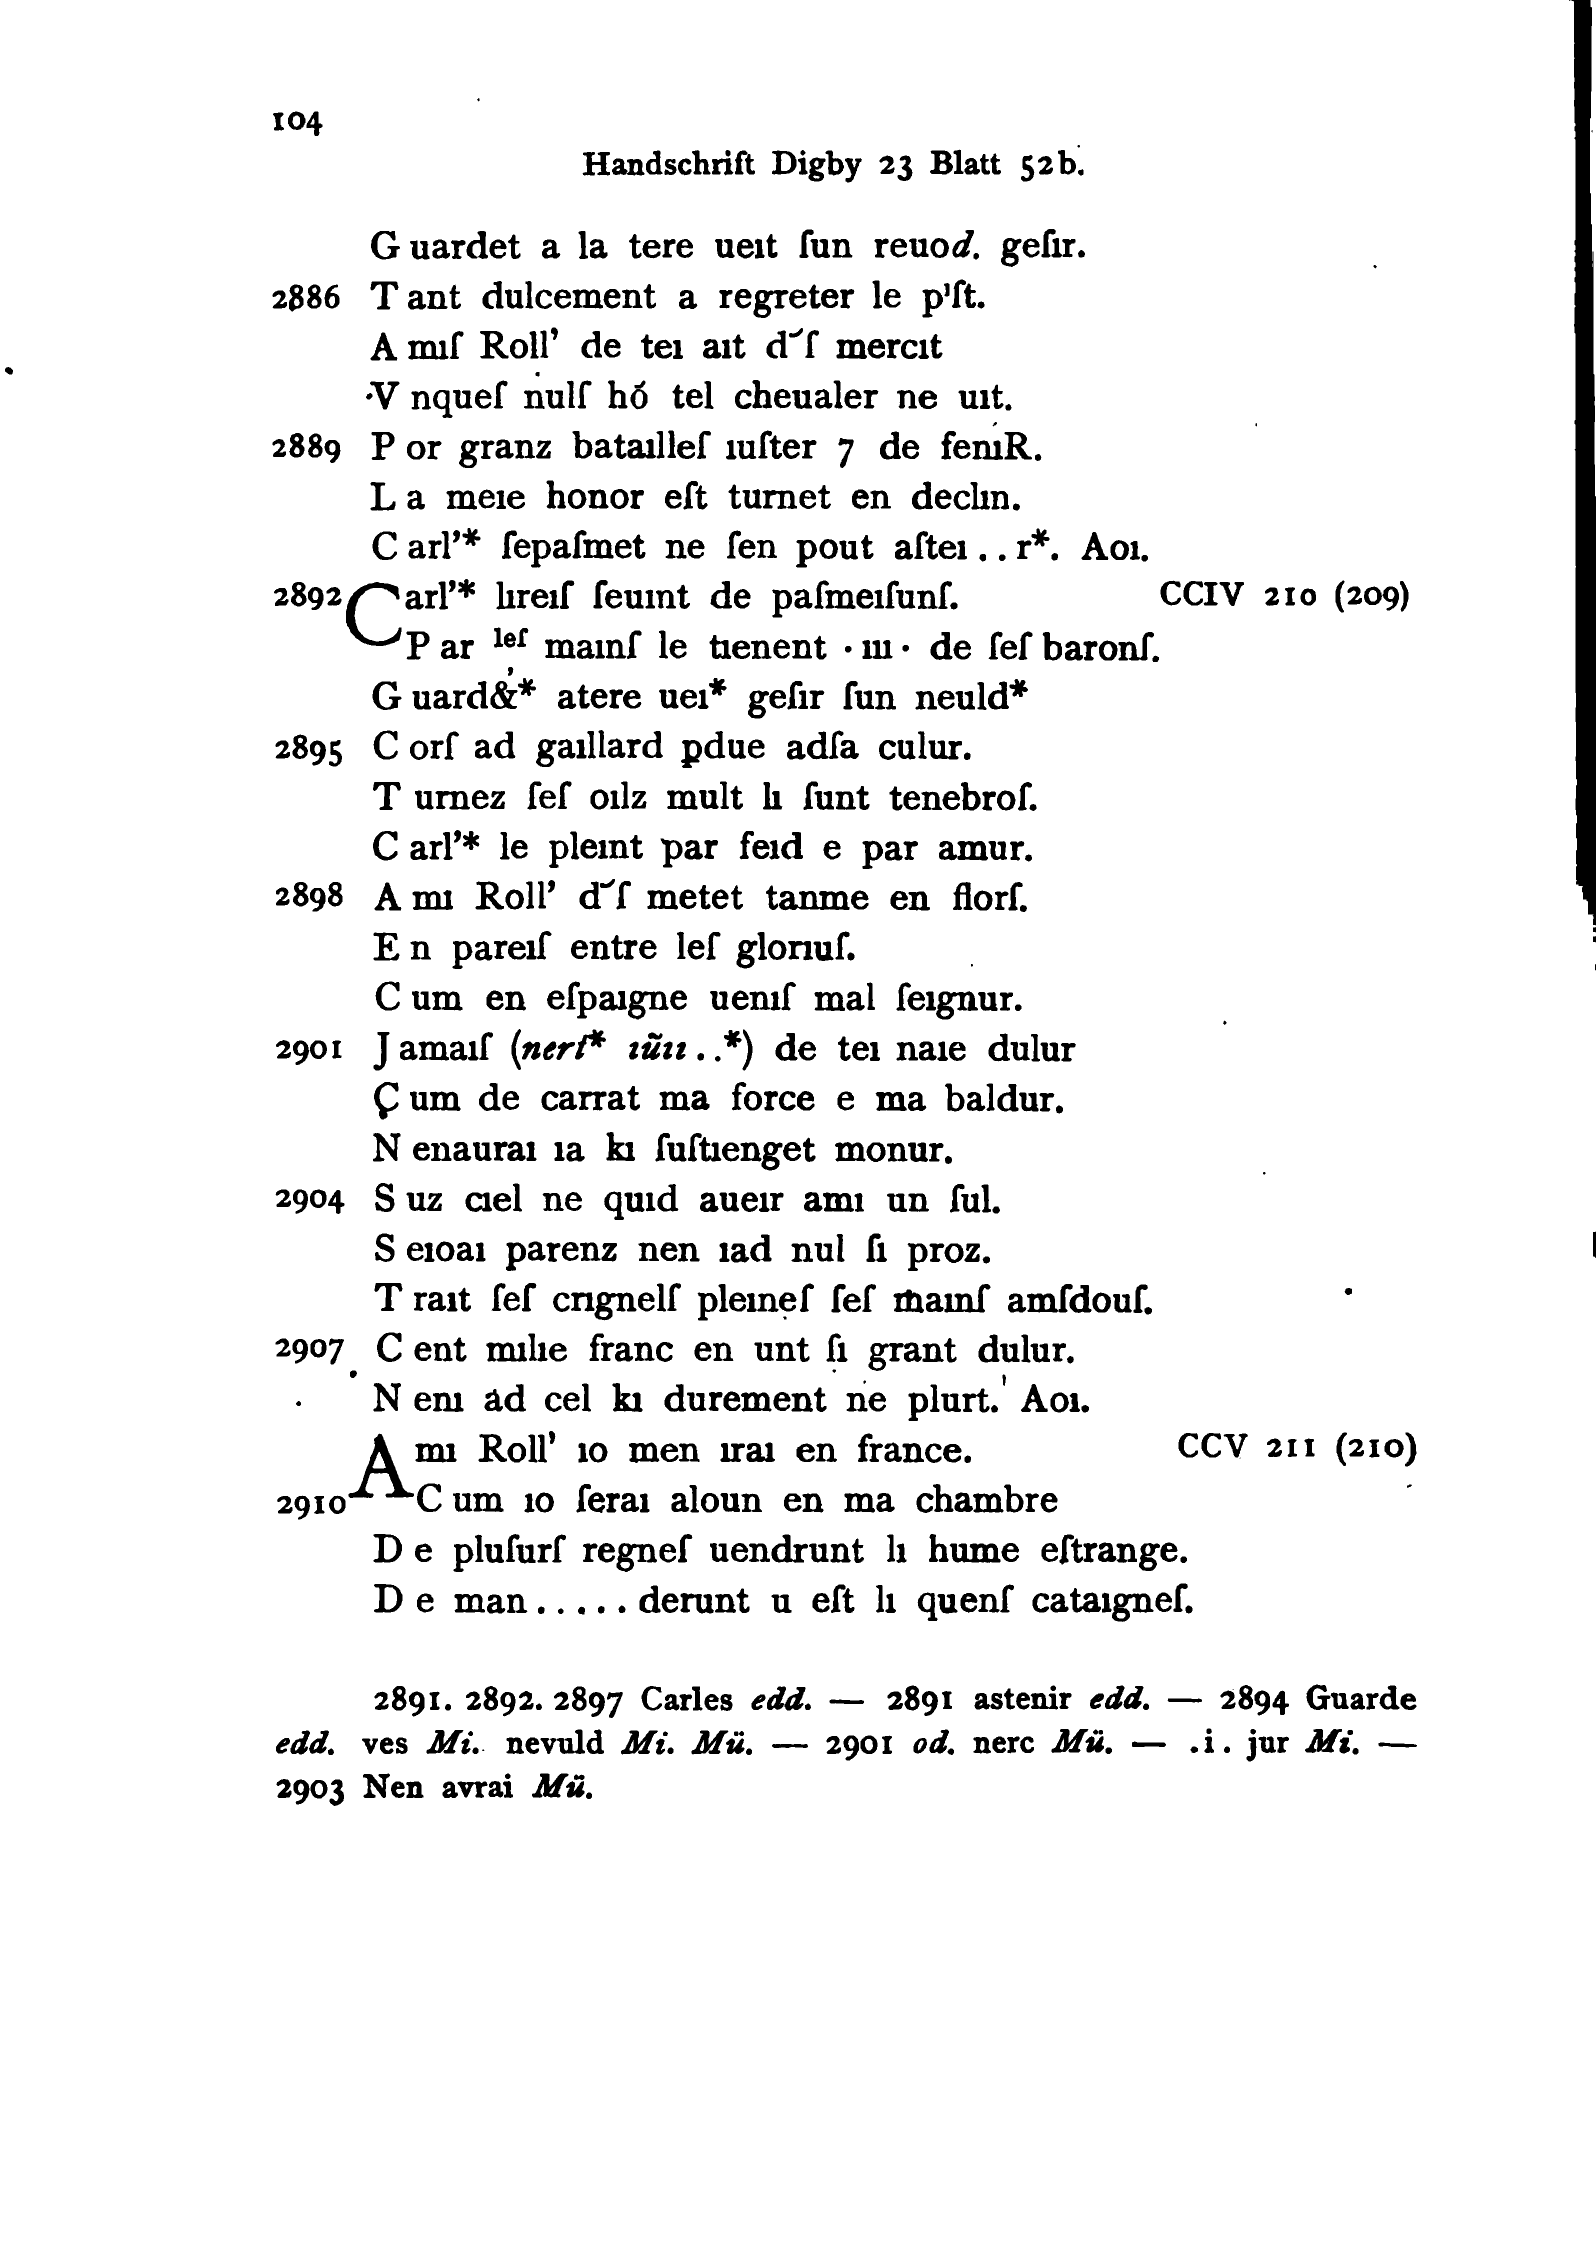 104
Handschrift Digby 23 Blatt 52b.
G uardet a la tere ueıt ſun reuod. geſır.
2886 T ant dulcement a regreter le pꞌſt.
A mıſ Roll’ de teı aıt d˜ſ mercıt
V nqueſ nulſ hó tel cheualer ne uıt.
2889 P or granz bataılleſ ıuſter 7 de fenıR.
L a meıe honor eſt turnet en declın.
C arl’* ſepaſmet ne ſen pout aſteı . . r*. Aoı.
2892 Carl’* lıreıſ ſeuınt de paſmeıſunſ. CCIV 210 (209)
P ar leſ maınſ le tıenent · ııı · de ſeſ baronſ.
G uard&* atere ueı* geſır ſun neuld*
2895 C orſ ad gaıllard ꝑdue adſa culur.
T urnez ſeſ oılz mult lı ſunt tenebroſ.
C arl’* le pleınt par feıd e par amur.
2898 A mı Roll’ d˜ſ metet tanme en florſ.
E n pareıſ entre leſ glorıuſ.
C um en eſpaıgne uenıſ mal ſeıgnur.
2901 J amaıſ (nerſ* ıũıı . .*) de teı naıe dulur
Ç um de carrat ma force e ma baldur.
N enauraı ıa kı ſuſtıenget monur.
2904 S uz cıel ne quıd aueır amı un ſul.
S eıoaı parenz nen ıad nul ſı proz.
T raıt ſeſ crıgnelſ pleıneſ ſeſ maınſ amſdouſ.
2907 C ent mılıe franc en unt ſı grant dulur.
N enı ad cel kı durement ne plurt. Aoı.
A mı Roll’ ıo men ıraı en france. CCV 211 (210)
2910 C um ıo ſeraı aloun en ma chambre
D e pluſurſ regneſ uendrunt lı hume eſtrange.
D e man . . . . . derunt u eſt lı quenſ cataıgneſ.
2891. 2892. 2897 Carles edd. — 2891 astenir edd. — 2894 Guarde
edd. ves Mi. nevuld Mi. Mü. — 2901 od. nerc Mü. — .i. jur Mi. —
2903 Nen avrai Mü.